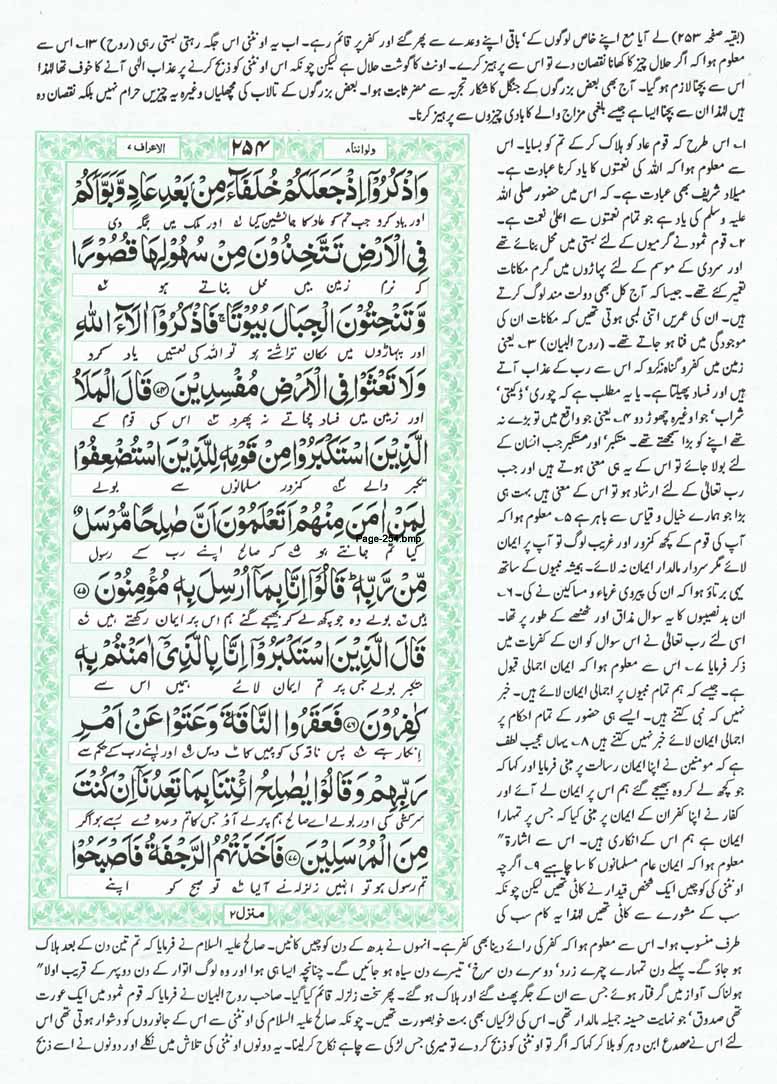 (بقیہ صفحہ ۲۵۳) لے آیا مع اپنے خاص لوگوں کے' باقی اپنے وعدے سے پھر گئے اور کفر پر قائم رہے۔ اب یہ اونٹنی اس جگہ رہتی بستی رہی (روح) ۱۳۔ اس سے
معلوم ہوا کہ اگر حلال چیز کا کھانا نقصان دے تو اس سے پرہیز کرے۔ اونٹ کا گوشت حلال ہے لیکن چونکہ اس اونٹنی کو ذبح کرنے پر عذاب الٰہی آنے کا خوف تھا لہٰذا
اس سے بچنا لازم ہو گیا۔ آج بھی بعض بزرگوں کے جنگل کا شکار تجربہ سے مضر ثابت ہوا۔ بعض بزرگوں کے تالاب کی مچھلیاں وغیرہ یہ چیزیں حرام نہیں بلکہ نقصان دہ
ہیں لہٰذا ان سے بچنا ایسا ہی ہے جیسے بلغمی مزاج والے کا بادی چیزوں سے پرہیز کرنا۔
الاعراف ۷
۲۵۴
ولواننا ۸
وَاذْكُرُوْٓا اِذْ جَعَلَكُمْ خُلَفَآءَ مِنْۢ بَعْدِ عَادٍ وَّبَوَّاَكُمْ
اور یاد کرو جب تم کو عاد کا جانشین کیا اور ملک میں جگہ دی
فِي الْاَرْضِ تَتَّخِذُوْنَ مِنْ سُهُوْلِهَا قُصُوْرًا
کہ نرم زمین میں محل بناتے ہو
وَّتَنْحِتُوْنَ الْجِبَالَ بُيُوْتًا ۚ فَاذْكُرُوْٓا اٰلَآءَ اللّٰهِ
اور پہاڑوں میں مکان تراشتے ہو تو اللہ کی نعمتیں یاد کرو
وَلَا تَعْثَوْا فِي الْاَرْضِ مُفْسِدِيْنَ ﴿۷۴﴾ قَالَ الْمَلَاُ
اور زمین میں فساد مچاتے نہ پھرو اس کی قوم کے
الَّذِيْنَ اسْتَكْبَرُوْا مِنْ قَوْمِهٖ لِلَّذِيْنَ اسْتُضْعِفُوْا
تکبر والے کمزور مسلمانوں سے بولے
لِمَنْ اٰمَنَ مِنْهُمْ اَتَعْلَمُوْنَ اَنَّ صٰلِحًا مُّرْسَلٌ
Page-254.bmp
کیا تم جانتے ہو کہ صالح اپنے رب کے رسول
مِّنْ رَّبِّهٖ ۭ قَالُوْٓا اِنَّا بِمَآ اُرْسِلَ بِهٖ مُؤْمِنُوْنَ ﴿۷۵﴾
ہیں بولے وہ جو کچھ لے کر بھیجے گئے ہم اس پر ایمان رکھتے ہیں
قَالَ الَّذِيْنَ اسْتَكْبَرُوْٓا اِنَّا بِالَّذِيْٓ اٰمَنْتُمْ بِهٖ
متکبر بولے جس پر تم ایمان لائے ہمیں اس سے
كٰفِرُوْنَ ﴿۷۶﴾ فَعَقَرُوا النَّاقَةَ وَعَتَوْا عَنْ اَمْرِ
انکار ہے پس ناقہ کی کوچیں کاٹ دیں اور اپنے رب کے حکم سے
رَبِّهِمْ وَقَالُوْا يٰصٰلِحُ ائْتِنَا بِمَا تَعِدُنَآ اِنْ كُنْتَ
سرکشی کی اور بولے اے صالح ہم پر لے آؤ جس کا تم وعدہ دے رہے ہو اگر
مِنَ الْمُرْسَلِيْنَ ﴿۷۷﴾ فَاَخَذَتْهُمُ الرَّجْفَةُ فَاَصْبَحُوْا
تم رسول ہو تو انہیں زلزلہ نے آلیا تو صبح کو اپنے
منزل ۲
۱۔ اس طرح کہ قوم عاد کو ہلاک کر کے تم کو بسایا۔ اس
سے معلوم ہوا کہ اللہ کی نعمتوں کا یاد کرنا عبادت ہے۔
میلاد شریف بھی عبادت ہے۔ کہ اس میں حضور صلی اللہ
علیہ وسلم کی یاد ہے جو تمام نعمتوں سے اعلیٰ نعمت ہے۔
۲۔ قوم ثمود نے گرمیوں کے لئے بستی میں محل بنائے تھے
اور سردی کے موسم کے لئے پہاڑوں میں گرم مکانات
تعمیر کئے تھے۔ جیسا کہ آج کل بھی دولت مند لوگ کرتے
ہیں۔ ان کی عمریں اتنی لمبی ہوتی تھیں کہ مکانات ان کی
موجودگی میں فنا ہو جاتے تھے۔ (روح البیان) ۳۔ یعنی
زمین میں کفر و گناہ نہ کرو کہ اس سے رب کے عذاب آتے
ہیں اور فساد پھیلتا ہے۔ یا یہ مطلب ہے کہ چوری' ڈکیتی'
شراب' جوا وغیرہ چھوڑ دو ۴۔ یعنی جو واقع میں تو بڑے نہ
تھے اپنے کو بڑا سمجھتے تھے۔ متکبر' اور متکبر جب انسان کے
لئے بولا جائے تو اس کے یہ ہی معنی ہوتے ہیں اور جب
رب تعالیٰ کے لئے ارشاد ہو تو اس کے معنی ہیں بہت ہی
بڑا جو ہمارے خیال و قیاس سے باہر ہے ۵۔ معلوم ہوا کہ
آپ کی قوم کے کچھ کمزور اور غریب لوگ تو آپ پر ایمان
لائے مگر سردار مالدار ایمان نہ لائے۔ ہمیشہ نبیوں کے ساتھ
یہی برتاؤ ہوا کہ ان کی پیروی غرباء و مساکین نے کی۔ ۶۔
ان بدنصیبوں کا یہ سوال مذاق اور ٹھٹھے کے طور پر تھا۔
اسی لئے رب تعالیٰ نے اس سوال کو ان کے کفریات میں
ذکر فرمایا ۷۔ اس سے معلوم ہوا کہ ایمان اجمالی قبول
ہے۔ جیسے کہ ہم تمام نبیوں پر اجمالی ایمان لائے ہیں۔ خبر
نہیں کہ نبی کتنے ہیں۔ ایسے ہی حضور کے تمام احکام پر
اجمالی ایمان لائے خبر نہیں کتنے ہیں ۸۔ یہاں عجیب لطف
ہے کہ مومنین نے اپنا ایمان رسالت پر مبنی فرمایا اور کہا کہ
جو کچھ لے کر وہ بھیجے گئے ہم اس پر ایمان لے آئے اور
کفار نے اپنا کفران کے ایمان پر مبنی کیا کہ جس پر تمہارا
ایمان ہے ہم اس کے انکاری ہیں۔ اس سے اشارۃ"
معلوم ہوا کہ ایمان عام مسلمانوں کا سا چاہیے ۹۔ اگرچہ
اونٹنی کی کوچیں ایک شخص قیدار نے کاٹی تھیں لیکن چونکہ
سب کے مشورے سے کاٹی تھیں لہٰذا یہ کام سب کی
طرف منسوب ہوا۔ اس سے معلوم ہوا کہ کفر کی رائے دینا بھی کفر ہے۔ انہوں نے بدھ کے دن کوچیں کاٹیں۔ صالح علیہ السلام نے فرمایا کہ تم تین دن کے بعد ہلاک
ہو جاؤ گے۔ پہلے دن تمہارے چہرے زرد' دوسرے دن سرخ' تیسرے دن سیاہ ہو جائیں گے۔ چنانچہ ایسا ہی ہوا اور وہ لوگ اتوار کے دن دوپہر کے قریب اولا"
ہولناک آواز میں گرفتار ہوئے جس سے ان کے جگر پھٹ گئے اور ہلاک ہو گئے۔ پھر سخت زلزلہ قائم کیا گیا۔ صاحب روح البیان نے فرمایا کہ قوم ثمود میں ایک عورت
تھی صدوق' جو نہایت حسینہ جمیلہ مالدار تھی۔ اس کی لڑکیاں بھی بہت خوبصورت تھیں۔ چونکہ صالح علیہ السلام کی اونٹنی سے اس کے جانوروں کو دشوار ہوتی تھی اس
لئے اس نے مصدع ابن دہر کو بلا کر کہا کہ اگر تو اونٹنی کو ذبح کر دے تو میری جس لڑکی سے چاہے نکاح کر لینا۔ یہ دونوں اونٹنی کی تلاش میں نکلے اور دونوں نے اسے ذبح